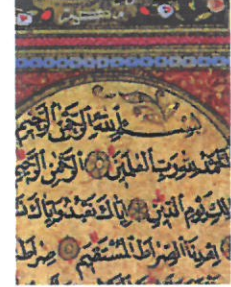 بسم الله الرحمن الرحيم
الحمد لله رب العلمين الرحمن الرحيم
يوم الدين اياك نعبد واياك
اهدنا الصراط المستقيم صراط